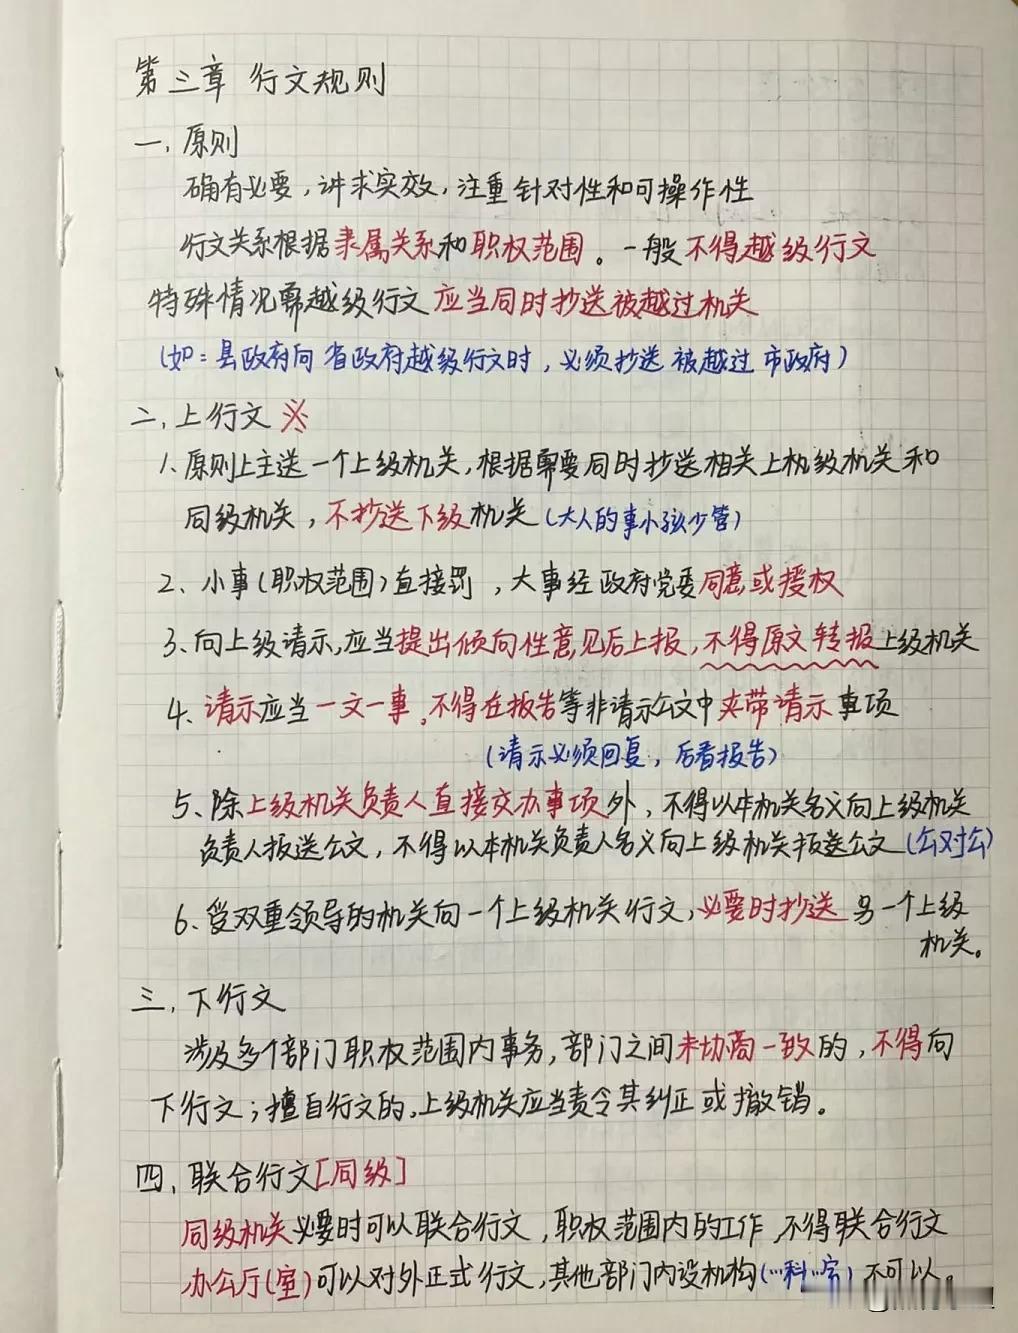 第三章 行文规则
一、原则
确有必要，讲求实效，注重针对性和可操作性
行文关系根据隶属关系和职权范围。一般不得越级行文
特殊情况需越级行文应当同时抄送被越过机关
(如:县政府向省政府越级行文时，必须抄送被越过市政府)
二、上行文 ※
1、原则上主送一个上级机关，根据需要同时抄送相关上机级机关和
同级机关，不抄送下级机关(大人的事小孩少管)
2、小事(职权范围)直接罚，大事经政府党委同意或授权
3、向上级请示，应当提出倾向性意见后上报，不得原文转报上级机关
4、请示应当一文一事，不得在报告等非请示公文中夹带请示事项
(请示必须回复，后看报告)
5、除上级机关负责人直接交办事项外，不得以本机关名义向上级机关
负责人报送公文，不得以本机关负责人名义向上级机关报送公文(公对公)
6、受双重领导的机关向一个上级机关行文，必要时抄送另一个上级
机关。
三、下行文
涉及多个部门职权范围内事务，部门之间未协商一致的，不得向
下行文；擅自行文的，上级机关应当责令其纠正或撤销。
四、联合行文[同级]
同级机关必要时可以联合行文，职权范围内的工作，不得联合行文
办公厅(室)可以对外正式行文，其他部门内设机构(…科…室)不可以。